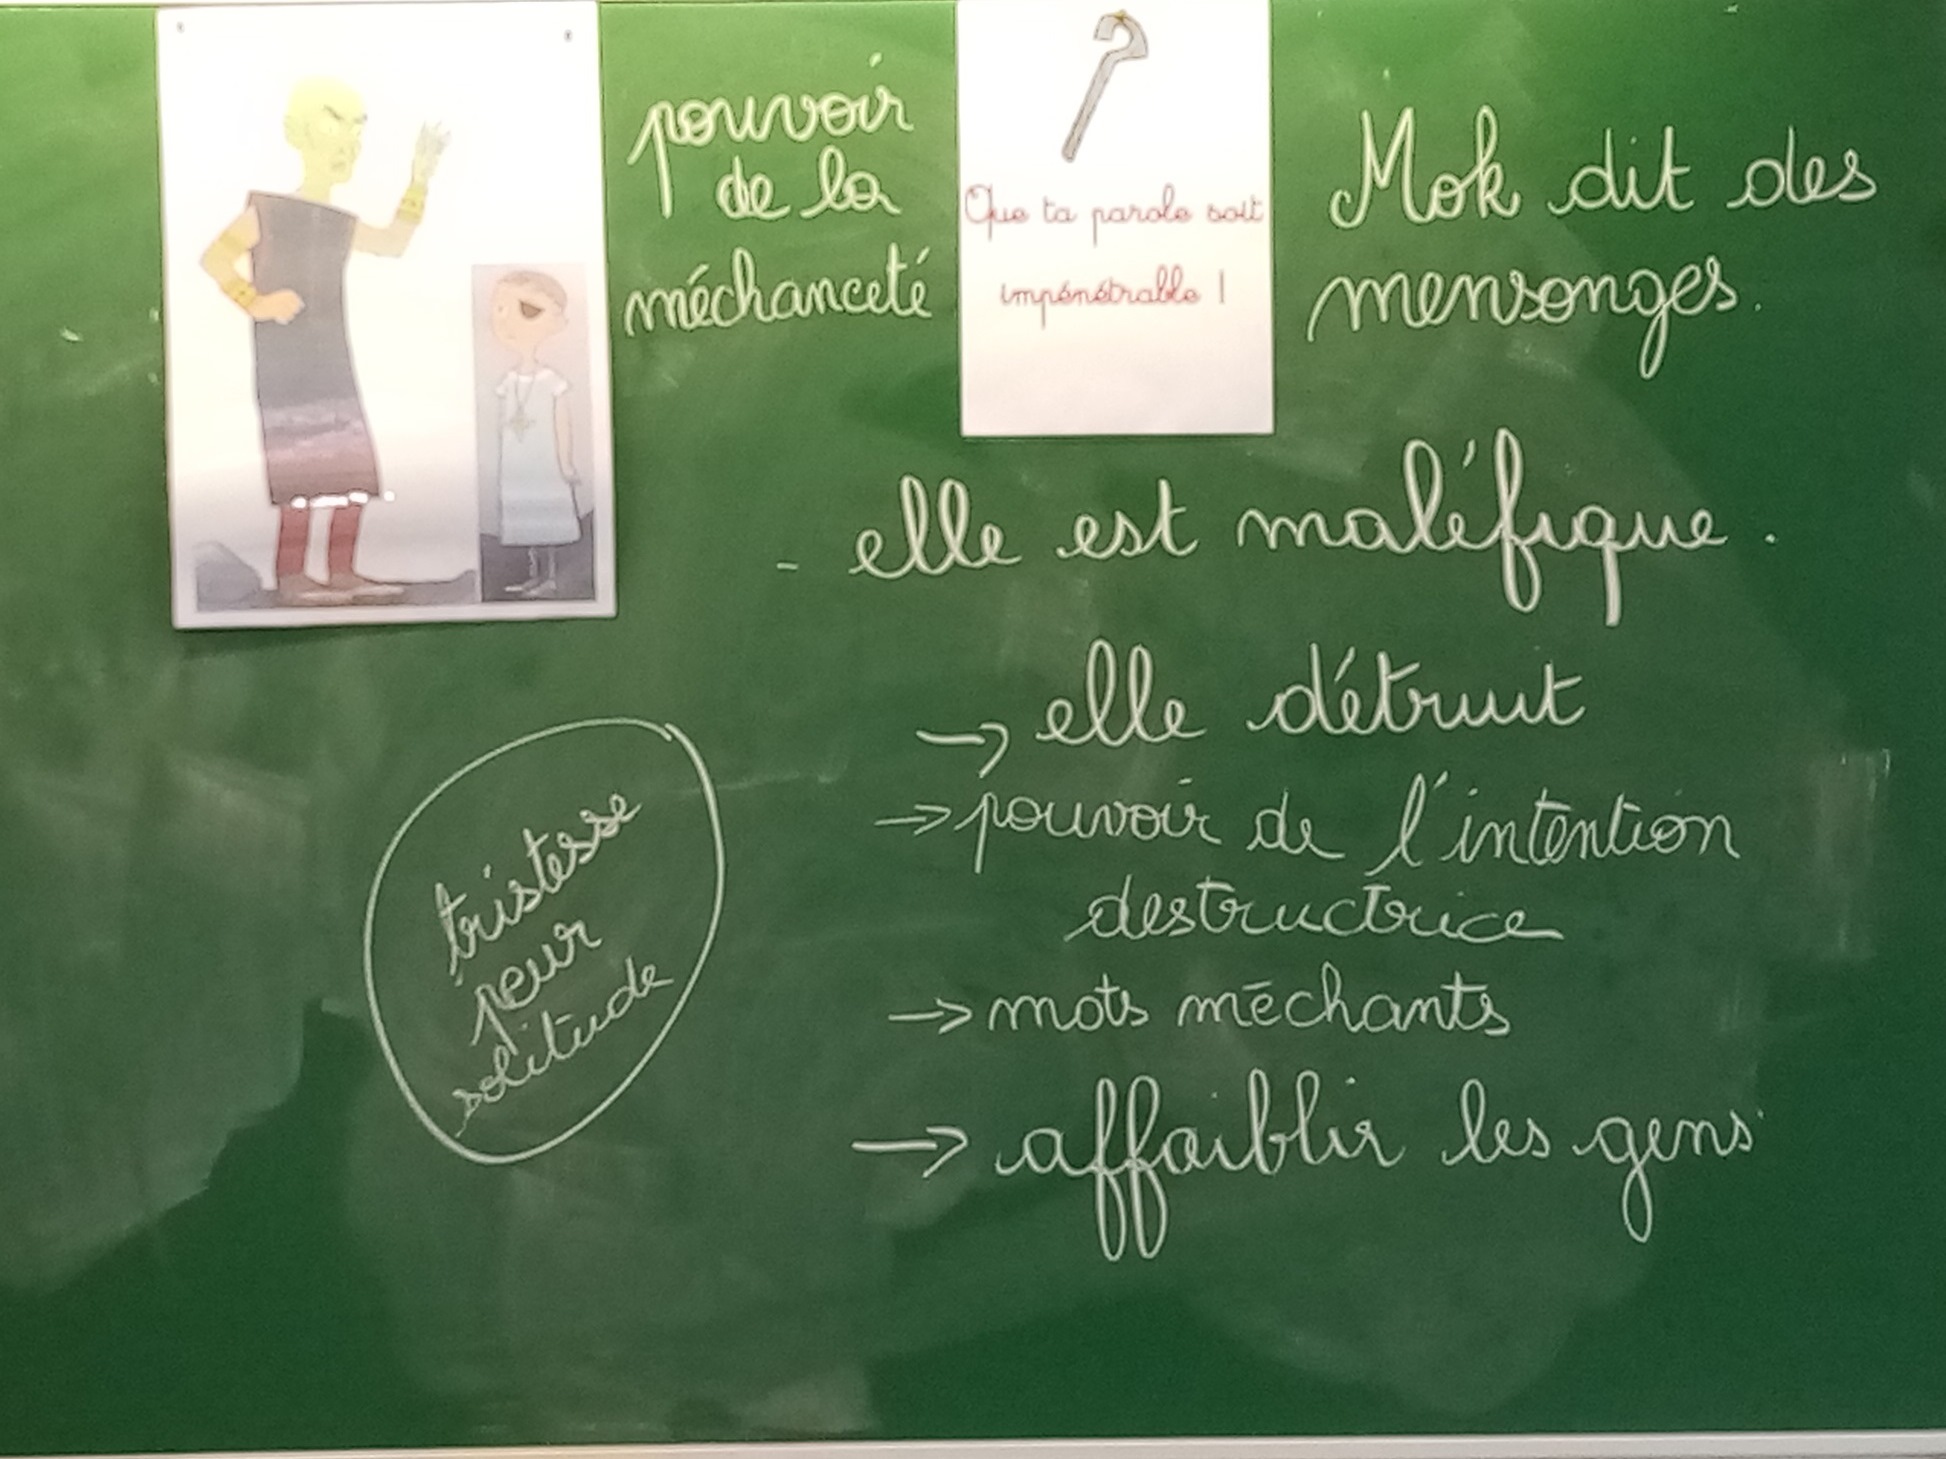 pouvoir
de la
méchanceté
Que ta parole soit
impénétrable !
Mok dit des
mensonges.
- elle est maléfique.
→ elle détruit
→ pouvoir de l'intention
destructrice
→ mots méchants
→ affaiblir les gens
tristesse
peur
solitude